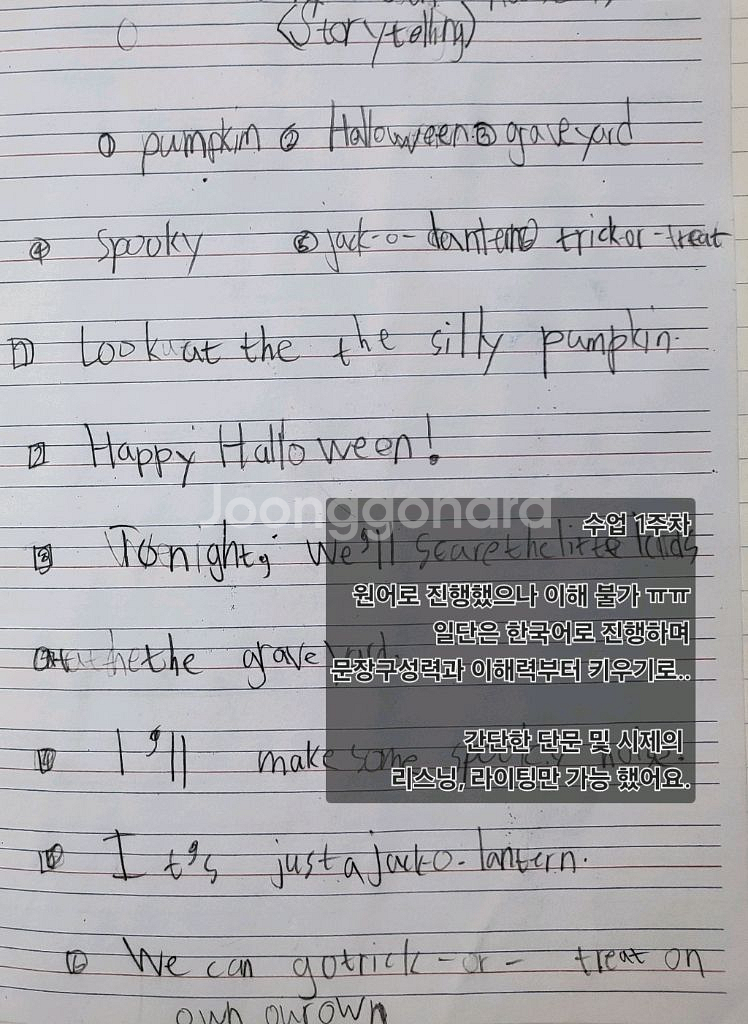 (Storytelling)
① pumpkin ② Halloween ③ graveyard
④ spooky ⑤ jack-o-lantern ⑥ trick-or-treat
1 Look at the the silly pumpkin.
2 Happy Halloween!
Joonggonara
수업 1주차
3 Tonight, we'll scare the little kids
원어로 진행했으나 이해 불가 ㅠㅠ
일단은 한국어로 진행하며
the graveyard.
문장구성력과 이해력부터 키우기로..
간단한 단문 및 시제의
4 I'll make some spooky noise.
리스닝, 라이팅만 가능 했어요.
5 It's just a jack-o-lantern.
6 We can go trick-or-treat on
own our own